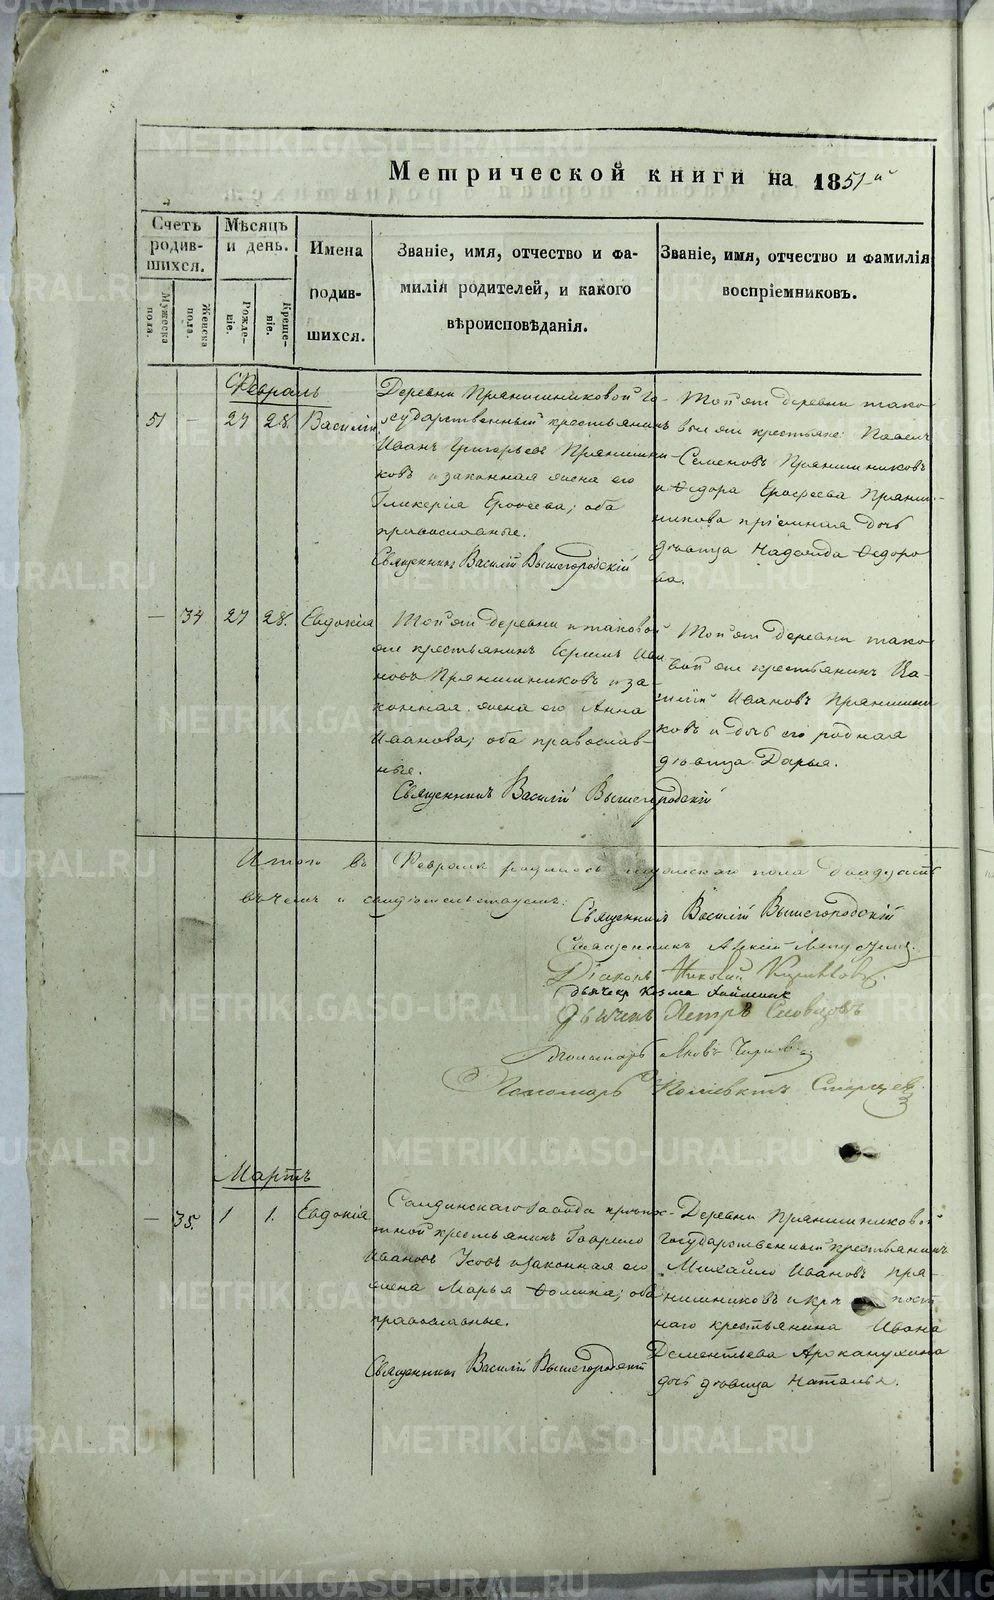 Метрической книги на 1851й
Счетъ родив-шихся.
Мѣсяцъ и день.
Имена родив-шихся.
Званіе, имя, отчество и фа-
милія родителей, и какого
вѣроисповѣданія.
Званіе, имя, отчество и фамилія
воспріемниковъ.
Мужеска пола.
Женска пола.
Рожде-ніе.
Креще-ніе.
Февраль
51 — 27 28. Василій
Деревни Прянишниковой Го-
сударственный крестьянинъ
Иванъ Григорьевъ Прянишни-
ковъ и законная жена его
Гликерія Ерофеева; оба
православные.
Священникъ Василій Вышегородскій
Той же деревни тако
вые же крестьяне: Павелъ
Семеновъ Прянишниковъ
и Ѳедора Ерофеева Пряни-
шникова пріемная дочь
дѣвица Надежда Ѳедоро
ва.
— 34 27 28. Евдокія
Той же деревни и таковой
же крестьянинъ Ива
новъ Прянишниковъ и за-
конная жена его Анна
Иванова; оба православ-
ные.
Священникъ Василій Вышегородскій
Той же деревни тако
вой же крестьянинъ Ва-
силій Ивановъ Прянишни
ковъ и дочь его родная
дѣвица Дарья.
Итого въ Февралѣ родилось мужеска пола двадцать
въ чемъ и свидѣтельствуемъ:
Священникъ Василій Вышегородскій
Священникъ Алексій
Діаконъ Николай
дьячекъ Козма
Дьячекъ Петръ Словцовъ
Пономарь Яковъ
Пономарь Старцев
Мартъ
— 35. 1 1. Евдокія
Салдинскаго завода крѣпос-
тной крестьянинъ Гаврило
Ивановъ Усовъ и законная его
жена Марья Ѳомина; оба
православные.
Священникъ Василій Вышегородскій
Деревни Прянишниковой
Государственный крестьянинъ
Михайло Ивановъ Пря-
нишниковъ и крѣпост
наго крестьянина Ивана
Дементьева
дочь дѣвица Наталья.
METRIKI.GASO-URAL.RU